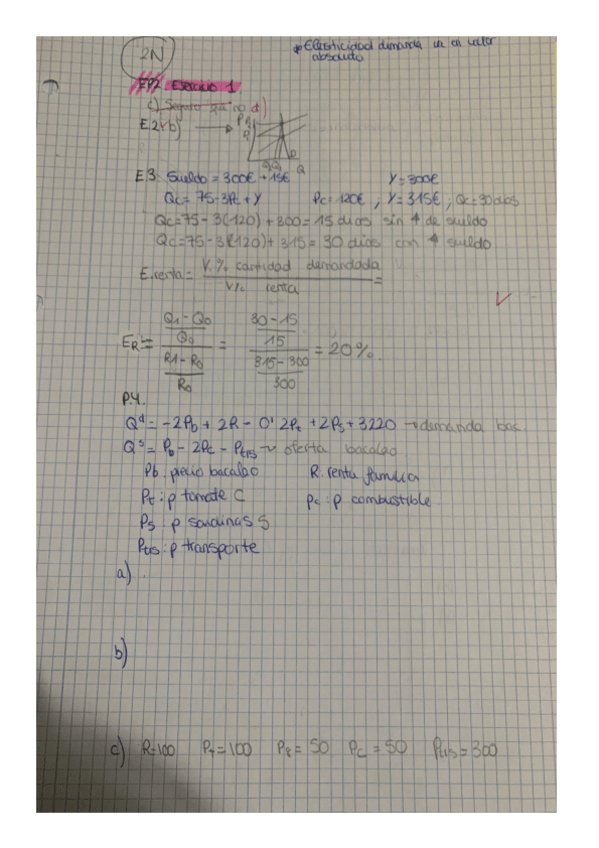 2N
* Elasticidad demanda va en valor
absoluto
EP2 Ejercicio 1
c) Seguro que no d)
E.2 b)
P
Q
E.3. Sueldo = 300€ + 15€ Y = 300€
Qc = 75-3Pc + Y Pc = 120€ ; Y = 315€ ; Qc = 30 días
Qc = 75 - 3(120) + 300 = 15 días sin ↑ de sueldo
Qc = 75 - 3(120) + 315 = 30 días con ↑ sueldo
E.renta = V.% cantidad demandada =
V% renta
Q1 - Q0 30 - 15
Q0 15
ER = = = 20%.
R1 - R0 315 - 300
R0 300
P.4.
Qd = -2Pb + 2R - 0'2Pt + 2Ps + 3220 → demanda bac.
Qs = Pb - 2Pc - Ptrs → oferta bacalao
Pb: precio bacalao R: renta familia
Pt: p tomate C Pc: p combustible
Ps: p sardinas S
Ptrs: p transporte
a)
b)
c) R=100 Pt=100 Ps=50 Pc=50 Ptrs=300